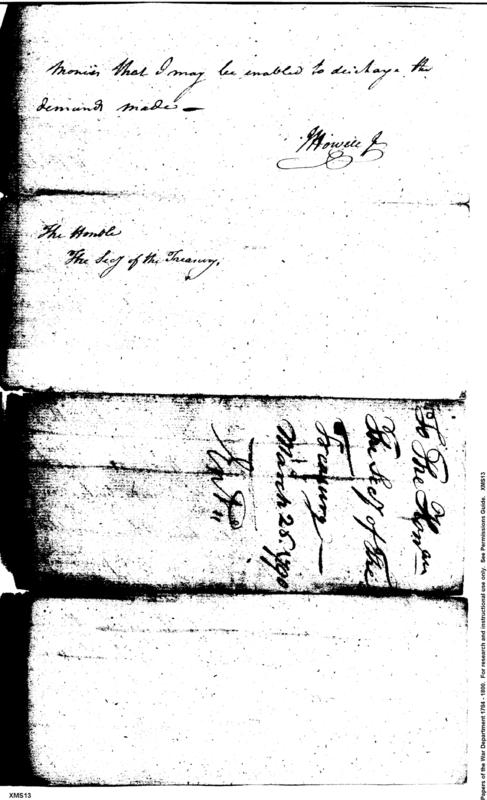 Monies that I may be enabled to discharge the
demands made —
J Howell Jr
The Honble
The Secy of the Treasury.
To The Hon
The Secy of the
Treasury —
March 25
XMS13
Papers of the War Department 1784 - 1800. For research and instructional use only. See Permissions Guide. XMS13